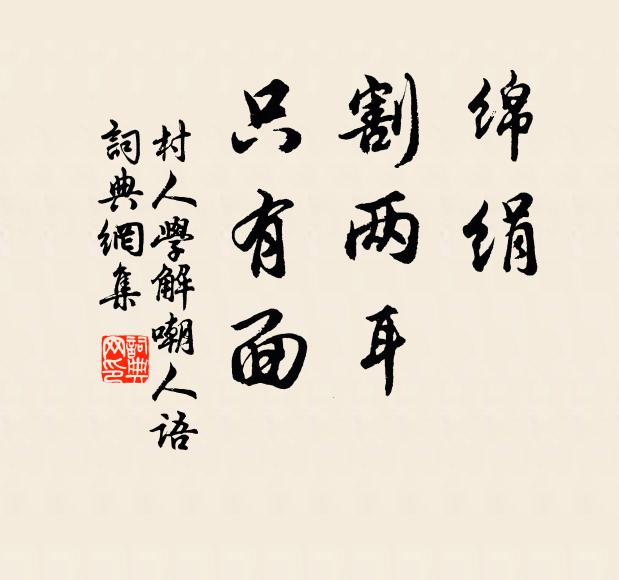 绵绢
割两耳
只有面
村人學解嘲人語
詞典網集
詞典
网印